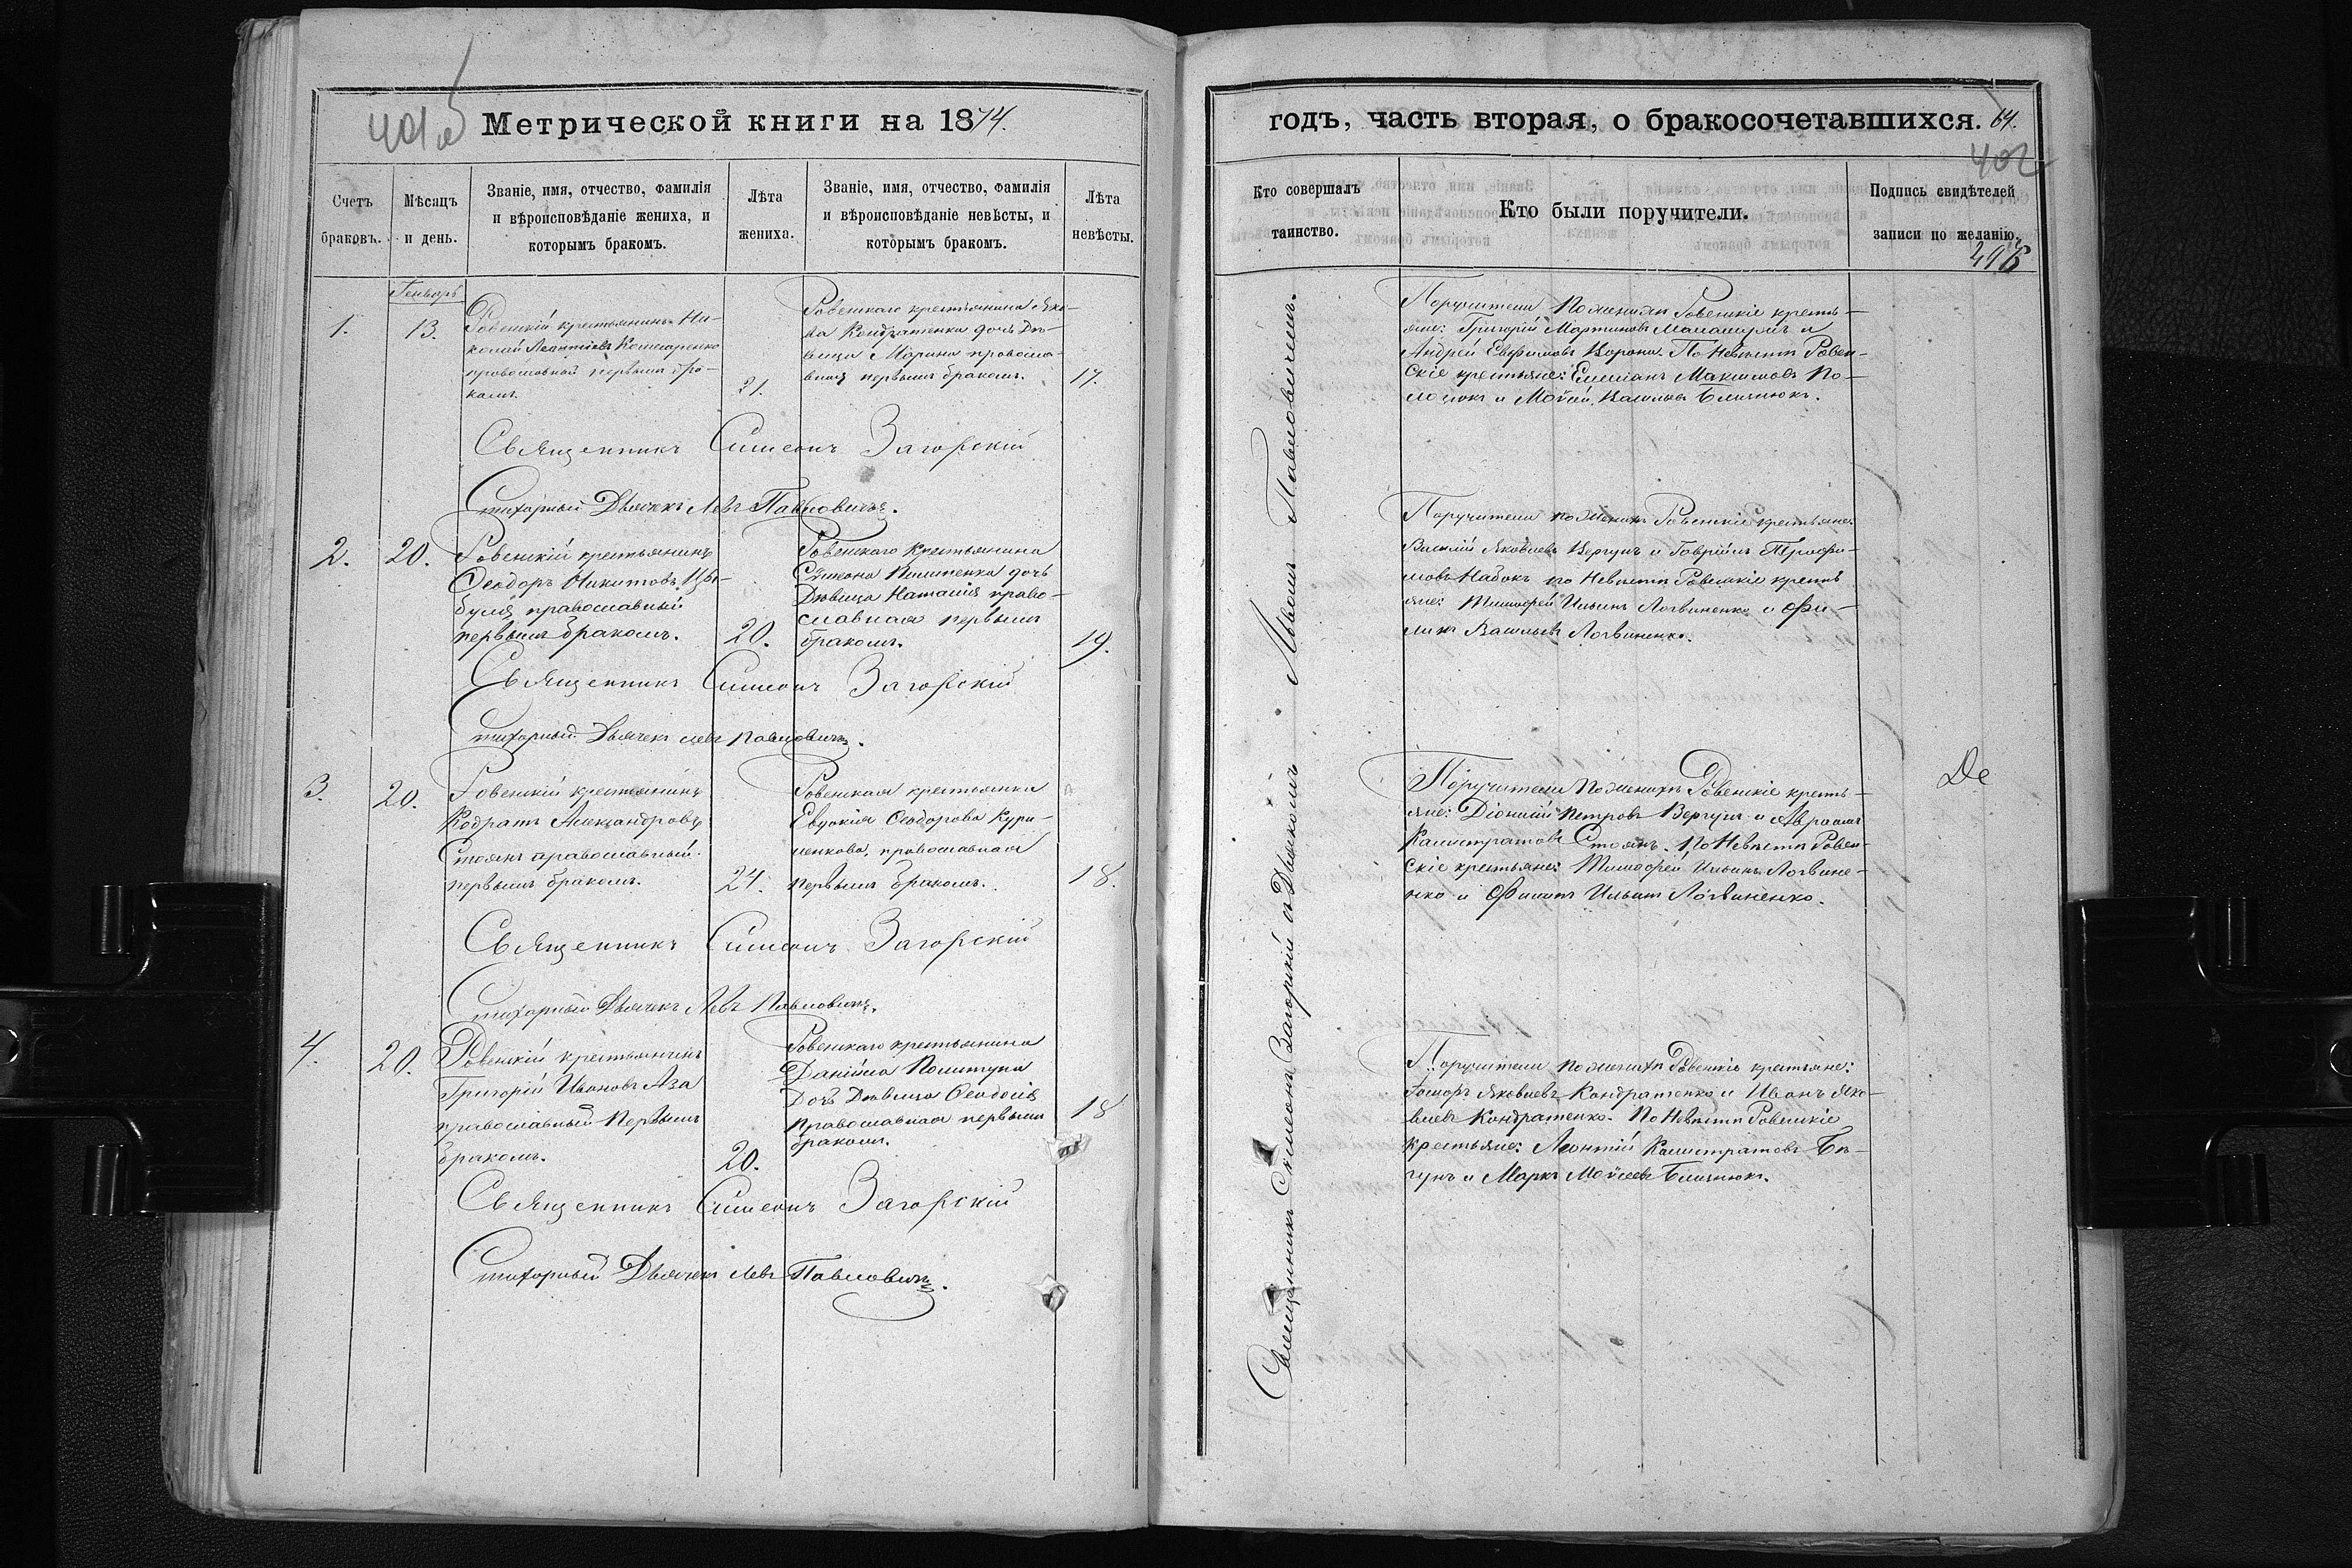 Метрической книги на 1874.
Счетъ браковъ.
Мѣсяцъ и день.
Званіе, имя, отчество, фамилія и вѣроисповѣданіе жениха, и которымъ бракомъ.
Лѣта жениха.
Званіе, имя, отчество, фамилія и вѣроисповѣданіе невѣсты, и которымъ бракомъ.
Лѣта невѣсты.
Геньваръ
1.
13.
Ровенскій крестьянинъ Ни-
колай Леонтіевъ
православный первымъ бра-
комъ.
21.
Ровенскаго крестьянина Яко-
ва Кондратенка дочь Дѣ-
вица Марина правосла-
вная первымъ бракомъ.
17.
Священникъ Симеонъ Загорскій
Стихорный Дьячекъ Левъ Павловичъ.
2.
20.
Ровенскій крестьянинъ
Ѳеодоръ Никитовъ Цы-
буля православный
первымъ бракомъ.
20.
Ровенскаго крестьянина
Симеона дочь
Дѣвица Наталія право-
славная первымъ
бракомъ.
19.
Священникъ Симеонъ Загорскій
Стихорный Дьячекъ Левъ Павловичъ.
3.
20.
Ровенскій крестьянинъ
Кодратъ Александровъ
Стоянъ православный
первымъ бракомъ.
24.
Ровенская крестьянка
Евдокія Ѳеодорова Кури-
ленкова, православная
первымъ бракомъ.
18.
Священникъ Симеонъ Загорскій
Стихорный Дьячекъ Левъ Павловичъ.
4.
20.
Ровенскій крестьянинъ
Григорій Ивановъ Аза
православный первымъ
бракомъ.
20.
Ровенскаго крестьянина
Даніила
Дочь Дѣвица Ѳеодосія
православная первымъ
бракомъ.
18
Священникъ Симеонъ Загорскій
Стихорный Дьячекъ Левъ Павловичъ.
годъ, часть вторая, о бракосочетавшихся.
64.
402
Кто совершалъ таинство.
Кто были поручители.
Подпись свидѣтелей записи по желанію.
Священникъ Симеонъ Загорскій съ Дьячкомъ Львомъ Павловичемъ.
Поручители по женихѣ Ровенскіе кресть-
яне: Григорій Мартиновъ и
Андрей Евфимовъ Ворона. По Невѣстѣ Ровен-
скіе крестьяне: Емиліанъ Максимовъ По-
и Мойсей Близнюкъ.
Поручители по женихѣ Ровенскіе крестьяне:
Василій Яковлевъ Вергунъ и Гавріилъ Трофи-
мовъ Набокъ по Невѣстѣ Ровенскіе кресть
яне: Тимофей Ильинъ Логвиненко и Фи-
липъ Васильевъ Логвиненко.
Поручители по женихѣ Ровенскіе кресть-
яне: Діонисій Петровъ Вергунъ и Авраамъ
Калистратовъ Стоянъ. По Невѣстѣ Ровен-
скіе крестьяне: Тимофей Ильинъ Логвине-
нко и Филипъ Ильинъ Логвиненко.
Де
Поручители по женихѣ Ровенскіе крестьяне:
Яковлевъ Кондратенко и Иванъ Яко-
влевъ Кондратенко. По Невѣстѣ Ровенскіе
крестьяне: Леонтій Калистратовъ Бѣ-
гунъ и Маркъ Мойсеевъ Близнюкъ.